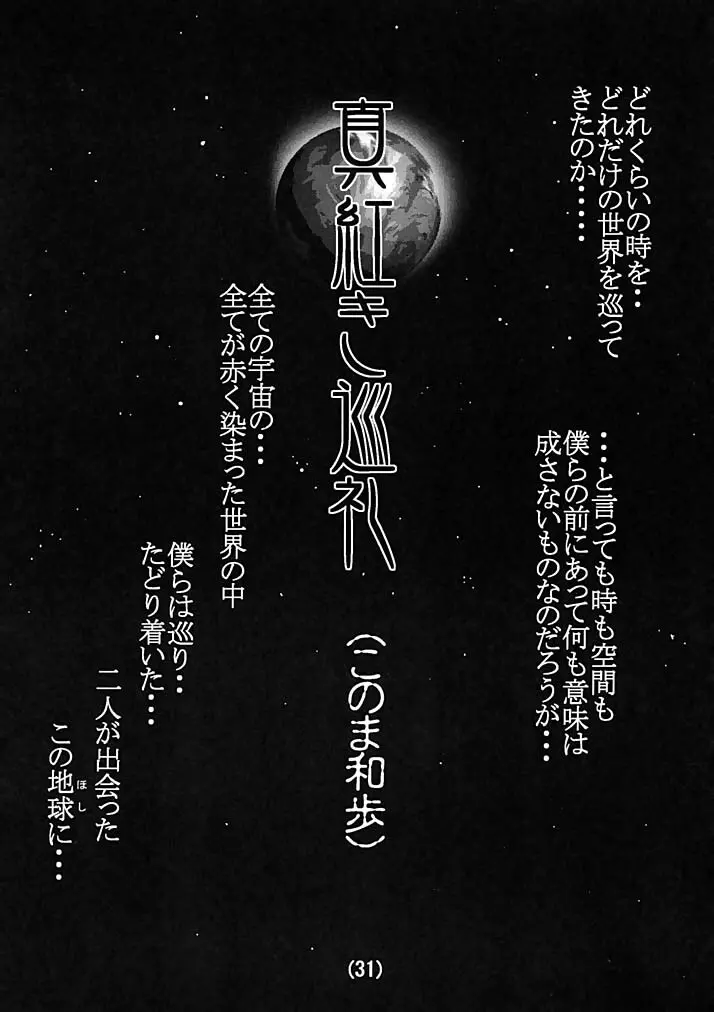 どれくらいの時を・・
どれだけの世界を巡って
きたのか・・・・・・
・・・と言っても時も空間も
僕らの前にあって何も意味は
成さないものなのだろうが・・・
真紅き巡礼
(このま和歩)
全ての宇宙の・・・
全てが赤く染まった世界の中
僕らは巡り・・
たどり着いた・・・
二人が出会った
この地球に・・・
ほし
(31)